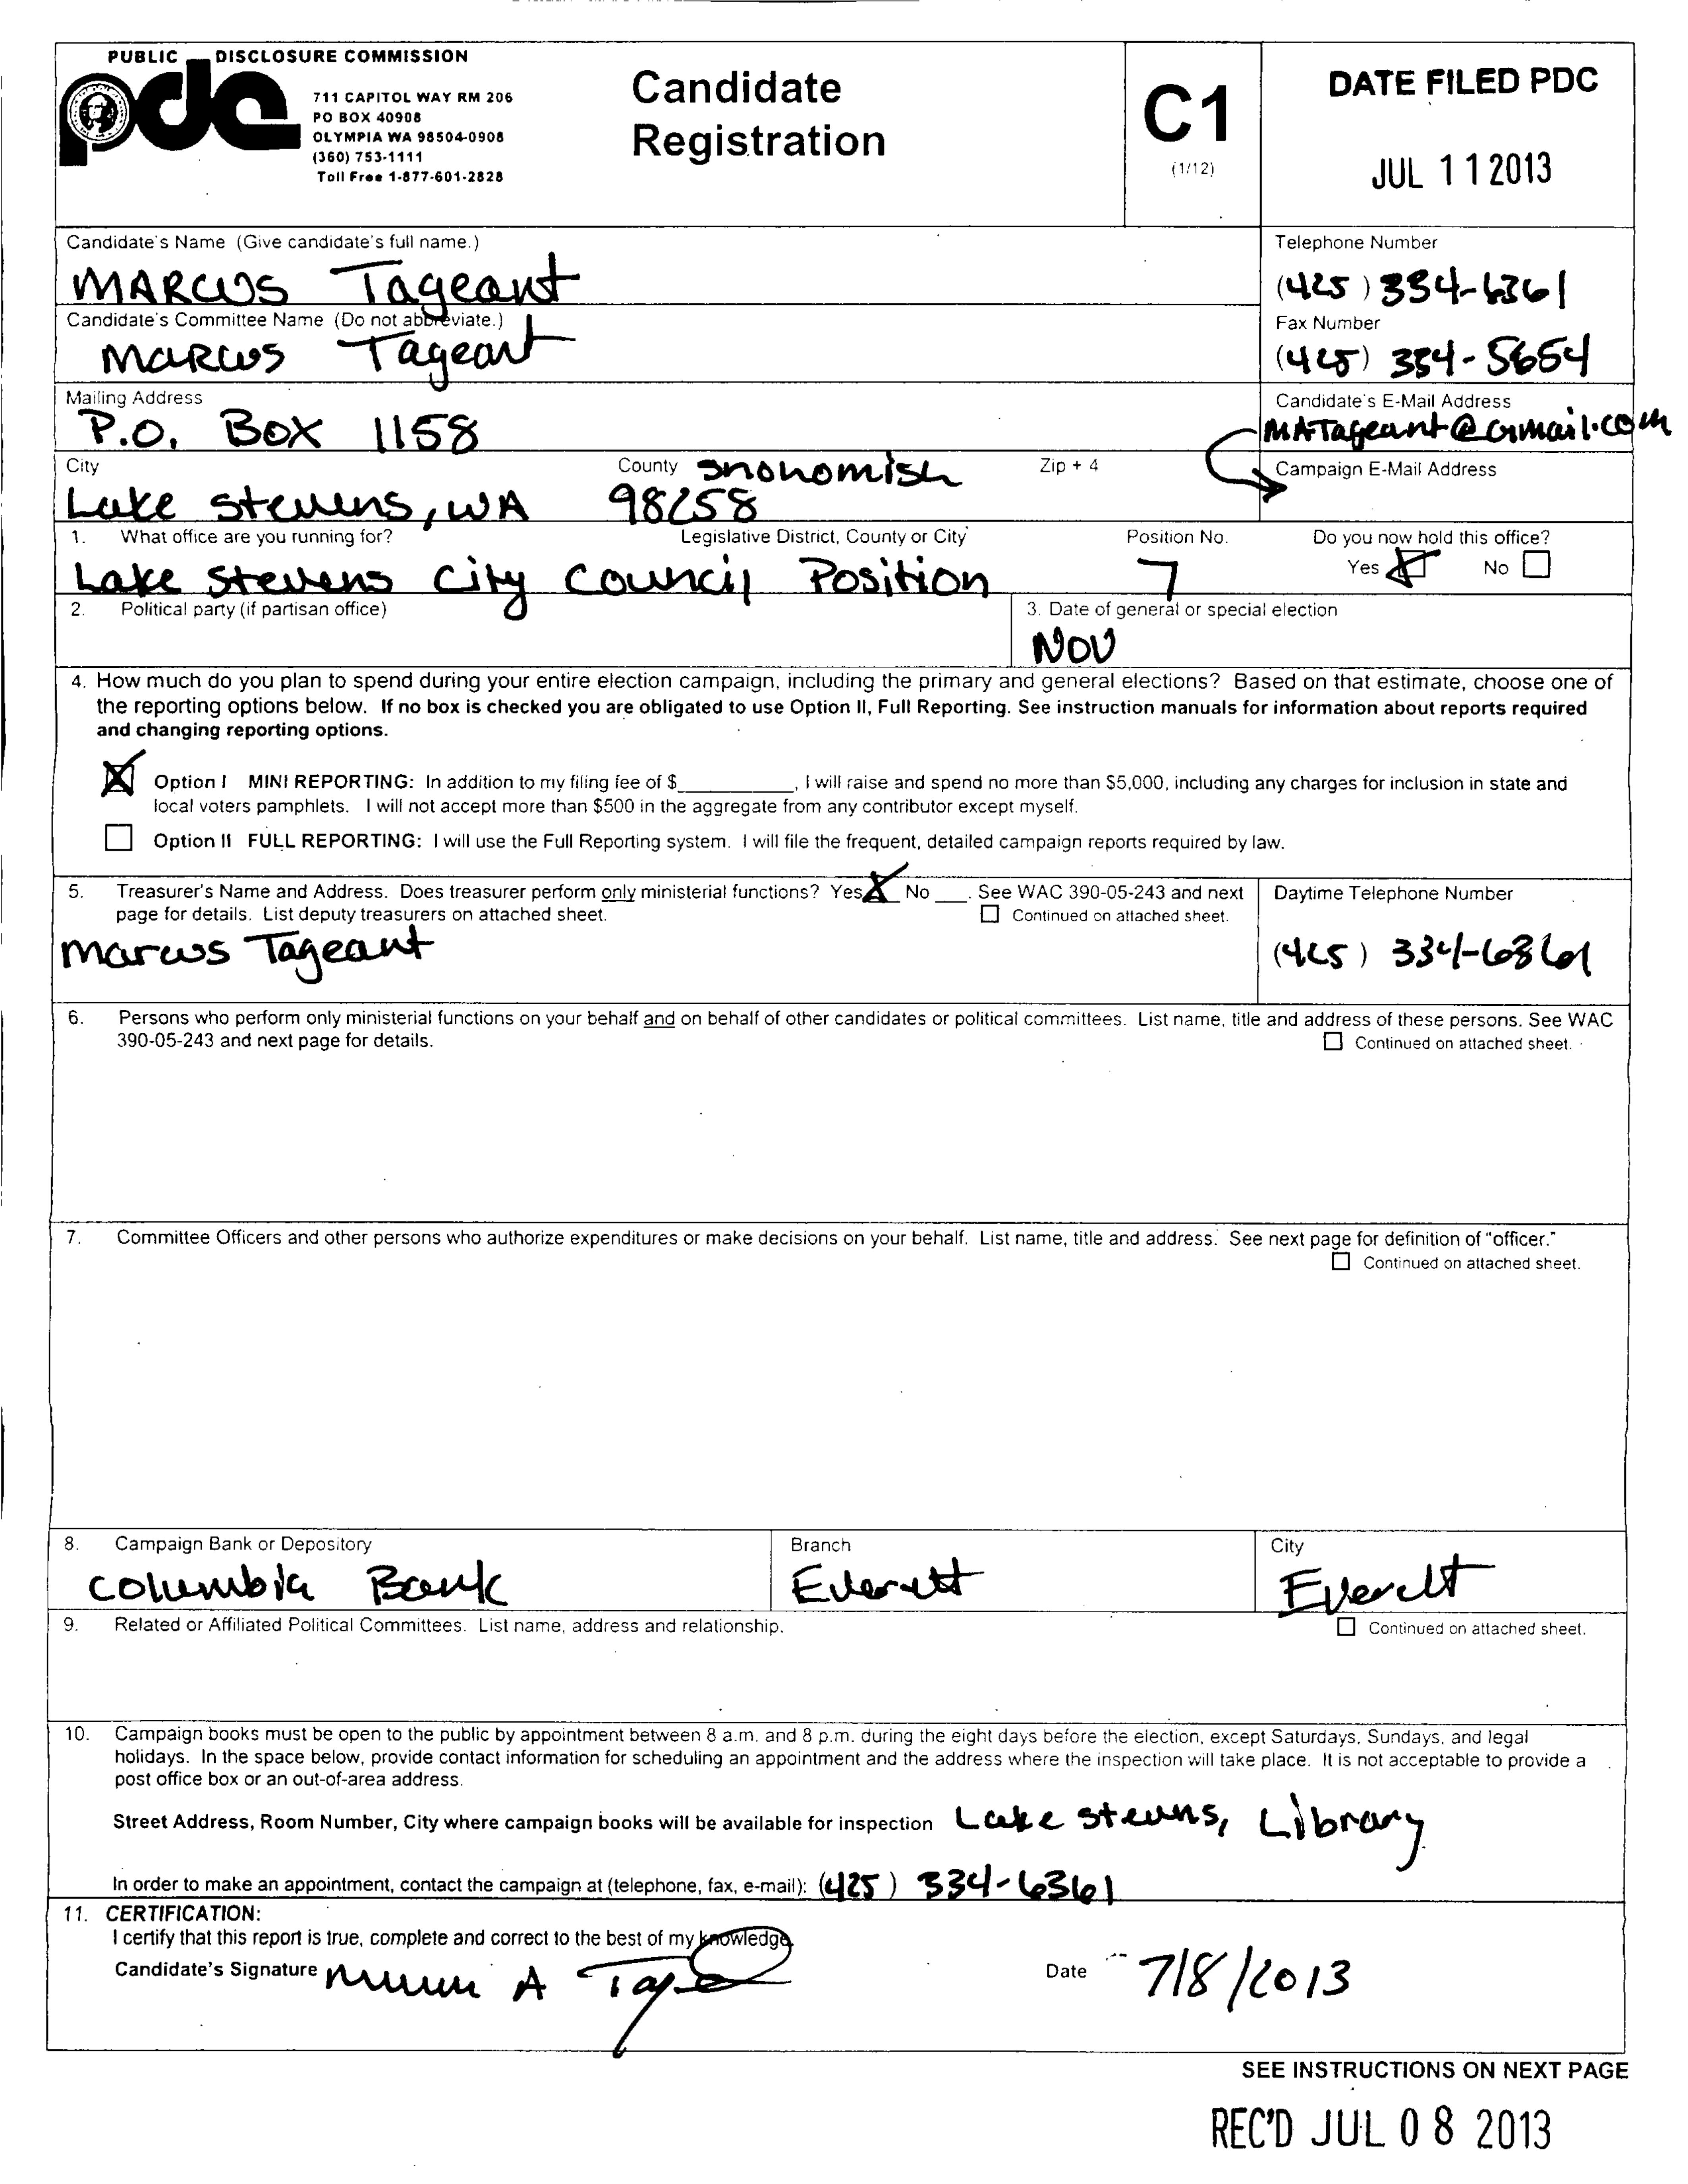 PUBLIC DISCLOSURE COMMISSION
pdc
711 CAPITOL WAY RM 206
PO BOX 40908
OLYMPIA WA 98504-0908
(360) 753-1111
Toll Free 1-877-601-2828
Candidate
Registration
C1
(1/12)
DATE FILED PDC
JUL 11 2013
Candidate's Name (Give candidate's full name.)
MARCUS Tageant
Telephone Number
(425) 334-6361
Candidate's Committee Name (Do not abbreviate.)
MARCUS Tageant
Fax Number
(425) 334-5654
Mailing Address
P.O. Box 1158
Candidate's E-Mail Address
MATageant@Gmail.com
City
Lake Stevens, WA
County Snohomish
Zip + 4
98258
Campaign E-Mail Address
1. What office are you running for?
Legislative District, County or City
Position No.
Do you now hold this office?
Lake Stevens City Council Position 7
Yes X No
2. Political party (if partisan office)
3. Date of general or special election
NOV
4. How much do you plan to spend during your entire election campaign, including the primary and general elections? Based on that estimate, choose one of
the reporting options below. If no box is checked you are obligated to use Option II, Full Reporting. See instruction manuals for information about reports required
and changing reporting options.
X Option I MINI REPORTING: In addition to my filing fee of $__________, I will raise and spend no more than $5,000, including any charges for inclusion in state and
local voters pamphlets. I will not accept more than $500 in the aggregate from any contributor except myself.
Option II FULL REPORTING: I will use the Full Reporting system. I will file the frequent, detailed campaign reports required by law.
5. Treasurer's Name and Address. Does treasurer perform only ministerial functions? Yes X No ___. See WAC 390-05-243 and next
page for details. List deputy treasurers on attached sheet.
Continued on attached sheet.
Daytime Telephone Number
Marcus Tageant
(425) 334-6361
6. Persons who perform only ministerial functions on your behalf and on behalf of other candidates or political committees. List name, title and address of these persons. See WAC
390-05-243 and next page for details.
Continued on attached sheet.
7. Committee Officers and other persons who authorize expenditures or make decisions on your behalf. List name, title and address. See next page for definition of "officer."
Continued on attached sheet.
8. Campaign Bank or Depository
Columbia Bank
Branch
Everett
City
Everett
9. Related or Affiliated Political Committees. List name, address and relationship.
Continued on attached sheet.
10. Campaign books must be open to the public by appointment between 8 a.m. and 8 p.m. during the eight days before the election, except Saturdays, Sundays, and legal
holidays. In the space below, provide contact information for scheduling an appointment and the address where the inspection will take place. It is not acceptable to provide a
post office box or an out-of-area address.
Street Address, Room Number, City where campaign books will be available for inspection Lake Stevens, Library
In order to make an appointment, contact the campaign at (telephone, fax, e-mail): (425) 334-6361
11. CERTIFICATION:
I certify that this report is true, complete and correct to the best of my knowledge.
Candidate's Signature
Date 7/8/2013
SEE INSTRUCTIONS ON NEXT PAGE
REC'D JUL 08 2013